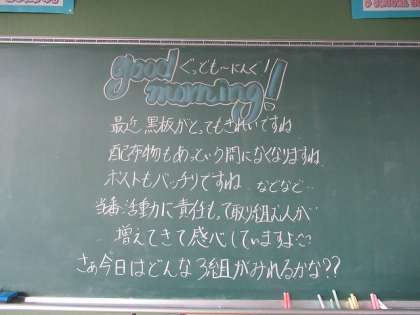 good ぐっども〜にんぐ!!
morning!
最近 黒板がとってもきれいですね
配布物もあっという間になくなりますね
ポストもバッチリですね などなど…
当番活動に責任もって取り組む人が
増えてきて感心していますよ
さぁ今日はどんな3組がみれるかな??